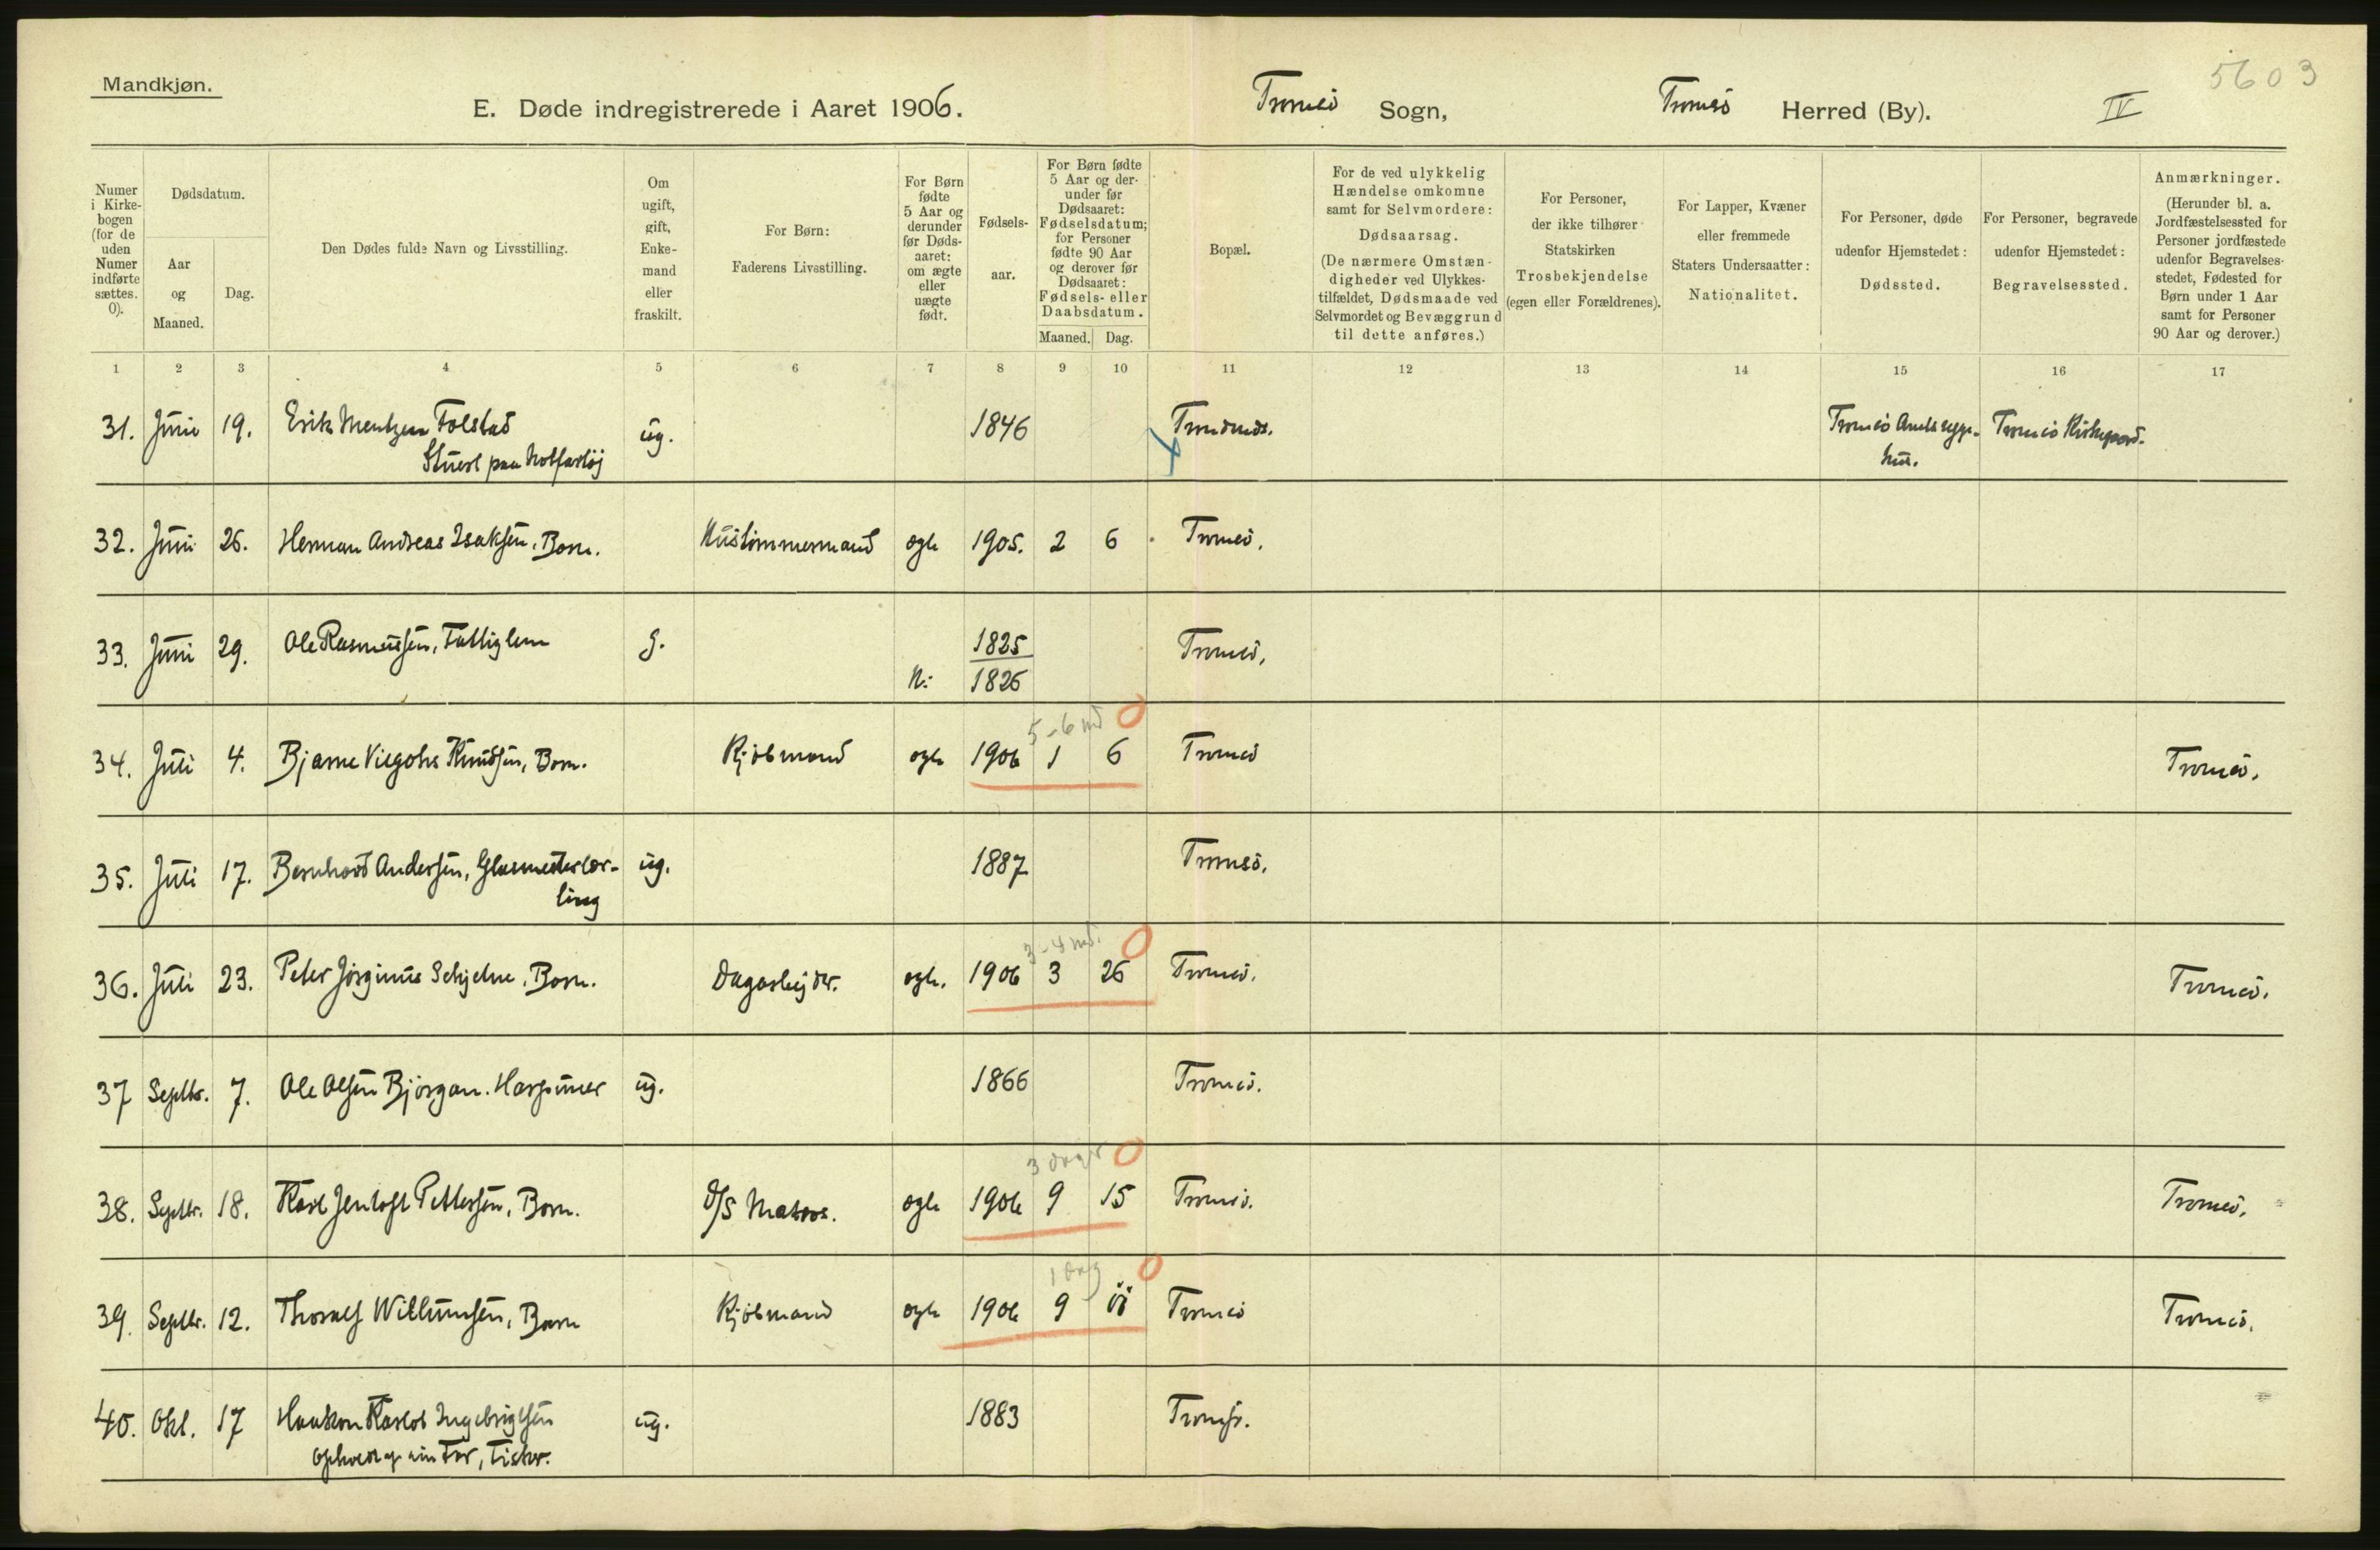 Mandkjøn.
5603
E. Døde indregistrerede i Aaret 1906.
Tromsö Sogn, Tromsö Herred (By). IV
Numer i Kirke-bogen (for de uden Numer indførte sættes. 0).
Dødsdatum.
Aar og Maaned.
Dag.
Den Dødes fulde Navn og Livsstilling.
Om ugift, gift, Enke-mand eller fraskilt.
For Børn: Faderens Livsstilling.
For Børn fødte 5 Aar og derunder før Døds-aaret: om ægte eller uægte født.
Fødsels-aar.
For Børn fødte 5 Aar og der-under før Dødsaaret: Fødselsdatum; for Personer fødte 90 Aar og derover før Dødsaaret: Fødsels- eller Daabsdatum.
Maaned. Dag.
Bopæl.
For de ved ulykkelig Hændelse omkomne samt for Selvmordere: Dødsaarsag. (De nærmere Omstæn-digheder ved Ulykkes-tilfældet, Dødsmaade ved Selvmordet og Bevæggrund til dette anføres.)
For Personer, der ikke tilhører Statskirken Trosbekjendelse (egen eller Forældrenes).
For Lapper, Kvæner eller fremmede Staters Undersaatter: Nationalitet.
For Personer, døde udenfor Hjemstedet: Dødssted.
For Personer, begravede udenfor Hjemstedet: Begravelsessted.
Anmærkninger. (Herunder bl. a. Jordfæstelsessted for Personer jordfæstede udenfor Begravelses-stedet, Fødested for Børn under 1 Aar samt for Personer 90 Aar og derover.)
1 2 3 4 5 6 7 8 9 10 11 12 13 14 15 16 17
31. Juni 19. Erik Mentzen Folstad ug. 1846 Tromsö Amtssyge- Tromsö Kirkegaard.
Stuert paa
hus.
32. Juni 26. Herman Andreas Isaksen, Barn. Hustömmermand ægte 1905. 2 6 Tromsö.
33. Juni 29. Ole Rasmussen, Fattiglem g. 1825 Tromsö,
N: 1826
5-6 md 0
34. Juli 4. Bjarne Knudsen, Barn. Kjöbmand ægte 1906 1 6 Tromsö Tromsö.
35. Juli 17. Bernhard Andersen, Glasmesterlær- ug. 1887 Tromsö.
ling
3-4 md. 0
36. Juli 23. Peter Jörginus Schjelne, Barn. Dagarbejder. ægte. 1906 3 26 Tromsö. Tromsö.
37 Septbr. 7. Ole Olsen Björgan. Harpuner ug. 1866 Tromsö.
3 dage 0
38. Septbr. 18. Karl Jentoft Pettersen, Barn. D/S Matros. ægte 1906 9 15 Tromsö. Tromsö.
1 dag 0
39. Septbr. 12. Thoralf Willumsen, Barn Kjöbmand ægte 1906 9 11 Tromsö Tromsö.
40. Okt. 17 Haakon Karlot Ingebrigtsen ug. 1883 Tromsö.
Far, Fisker.